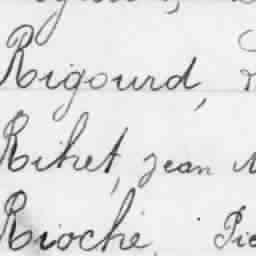 Rigourd,
Rihet, Jean
Rioche, Pie